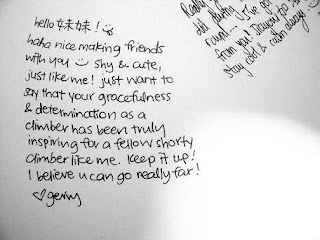 hello 妹妹!
haha nice making friends
with you shy & cute,
just like me! just want to
say that your gracefulness
& determination as a
climber has been truly
inspiring for a fellow shorty
climber like me. keep it up!
I believe u can go really far!
♡gerry
Really
old
from you!
stay cold & calm always